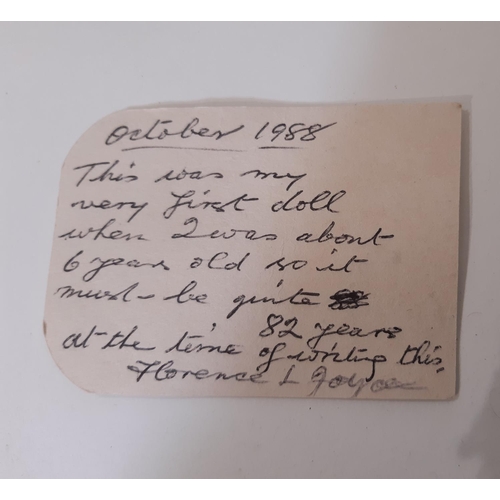 October 1988
This was my
very first doll
when I was about
6 years old so it
must be quite
82 years
at the time of writing this.
Florence L Joyce